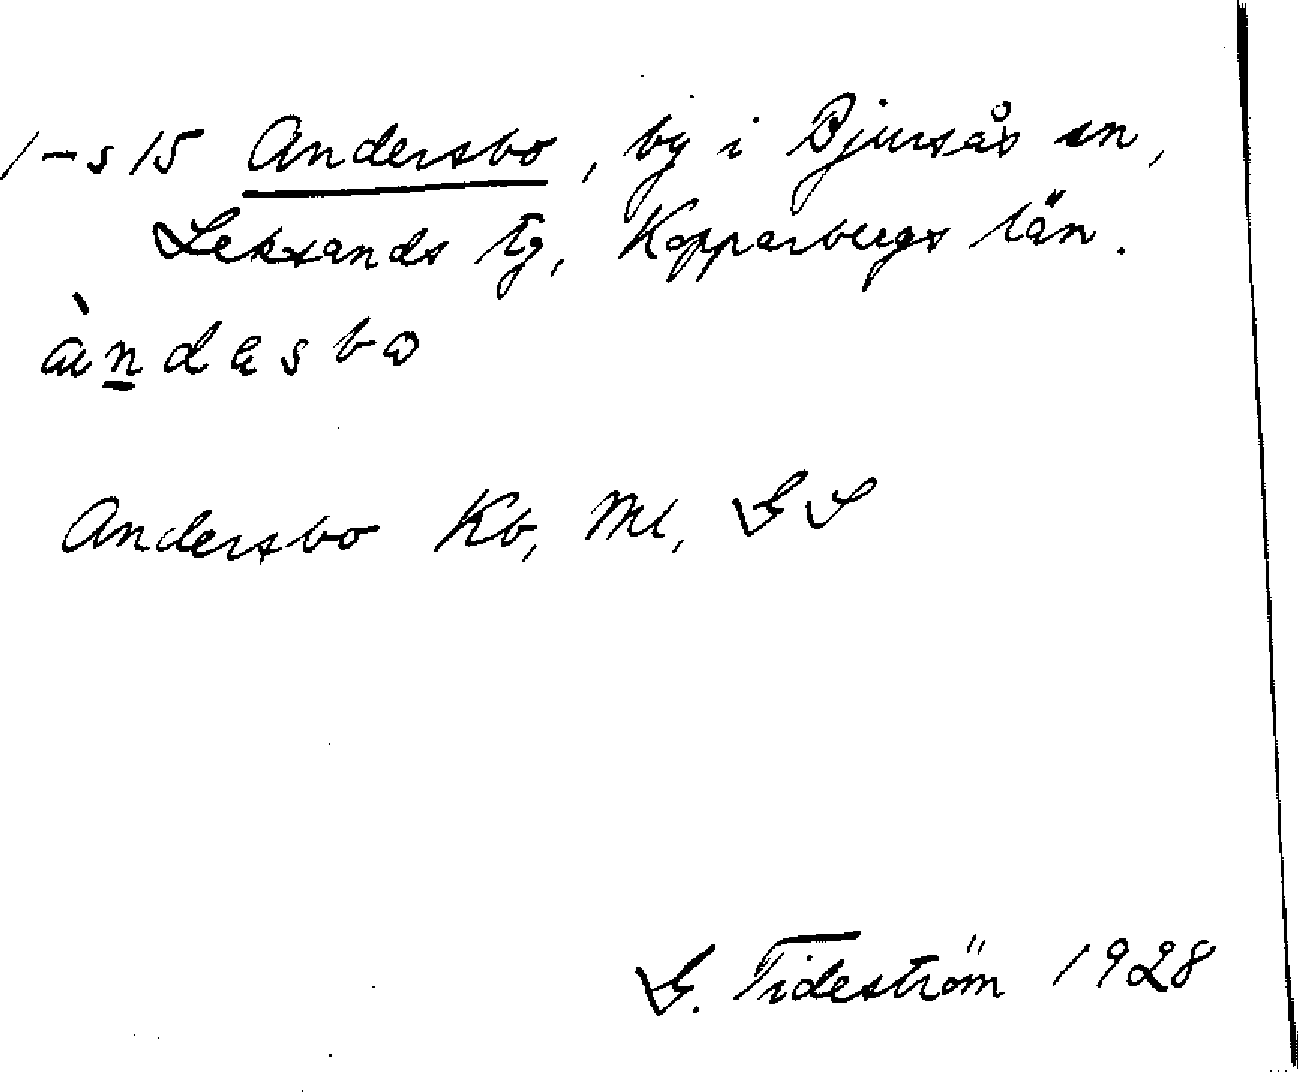 1-s 15 Andersbo, by i Bjursås sn,
Leksands tg, Kopparbergs län.
àndasbo
Andersbo Kb, Ml, GS
G. Tideström 1928